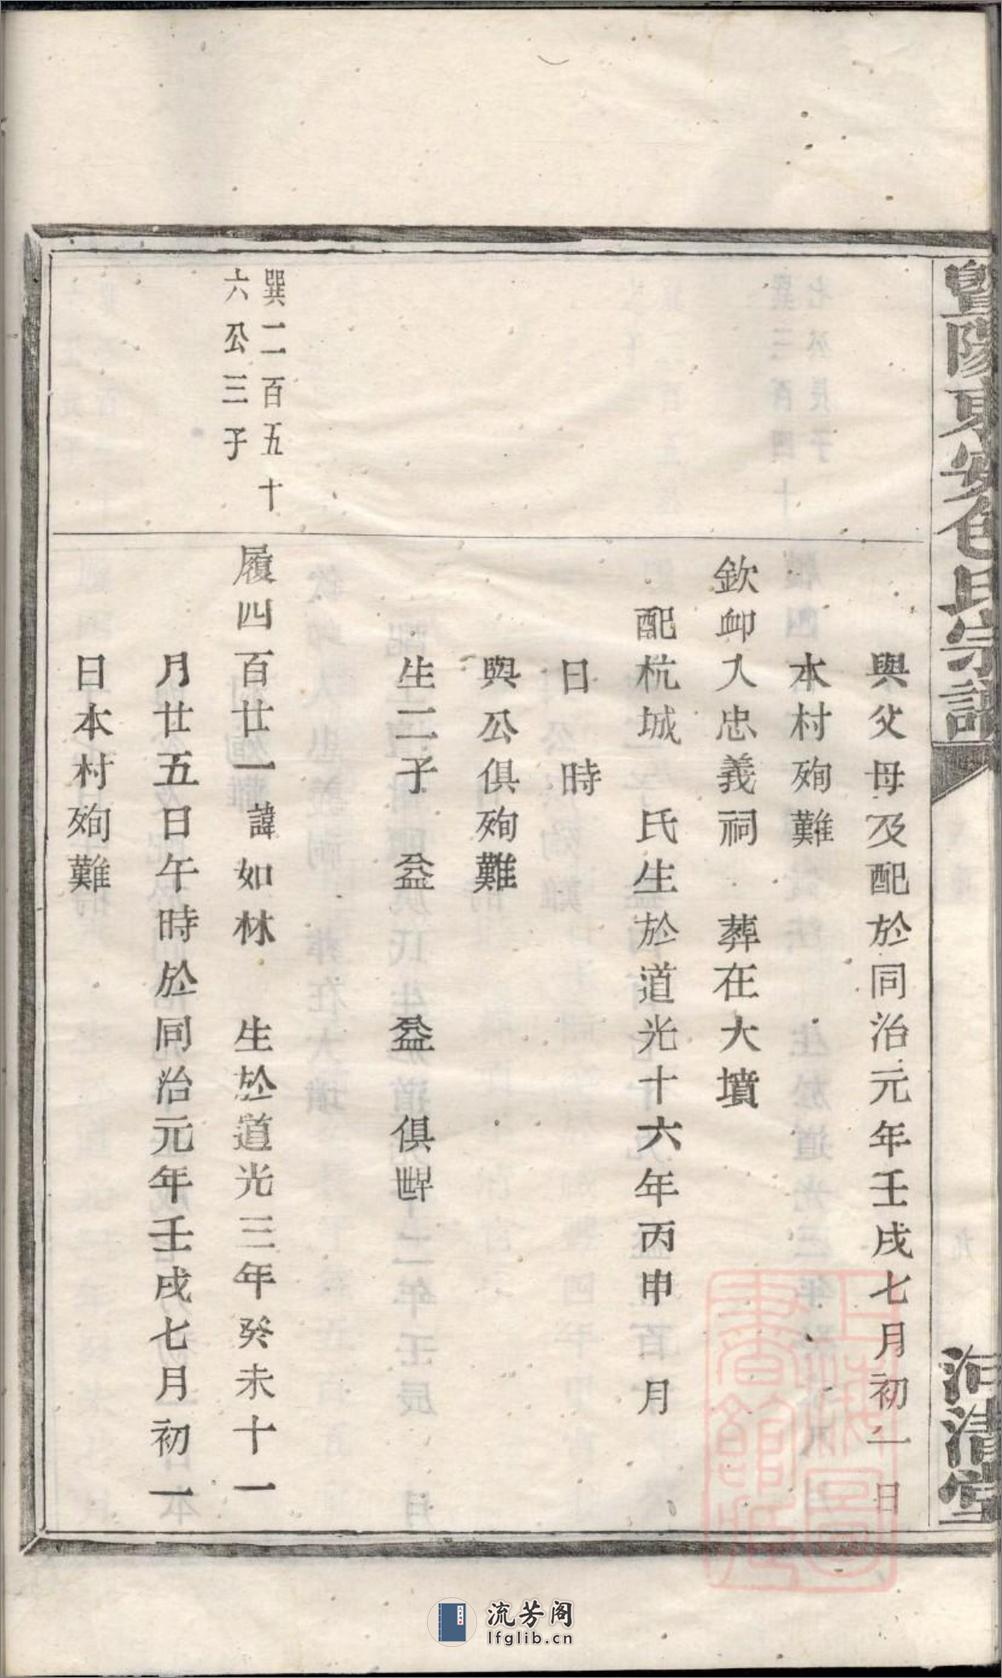 暨陽東安包氏宗譜
河清堂
與父母及配於同治元年壬戌七月初一日
本村殉難
欽卹入忠義祠 葬在大墳
配杭城 氏生於道光十六年丙申 月
日 時
與公俱殉難
生二子 益 益 俱
巽二百五十
六公三子
履四百廿一諱如林 生於道光三年癸未十一
月廿五日午時於同治元年壬戌七月初一
日本村殉難
流芳阁
lfglib.cn